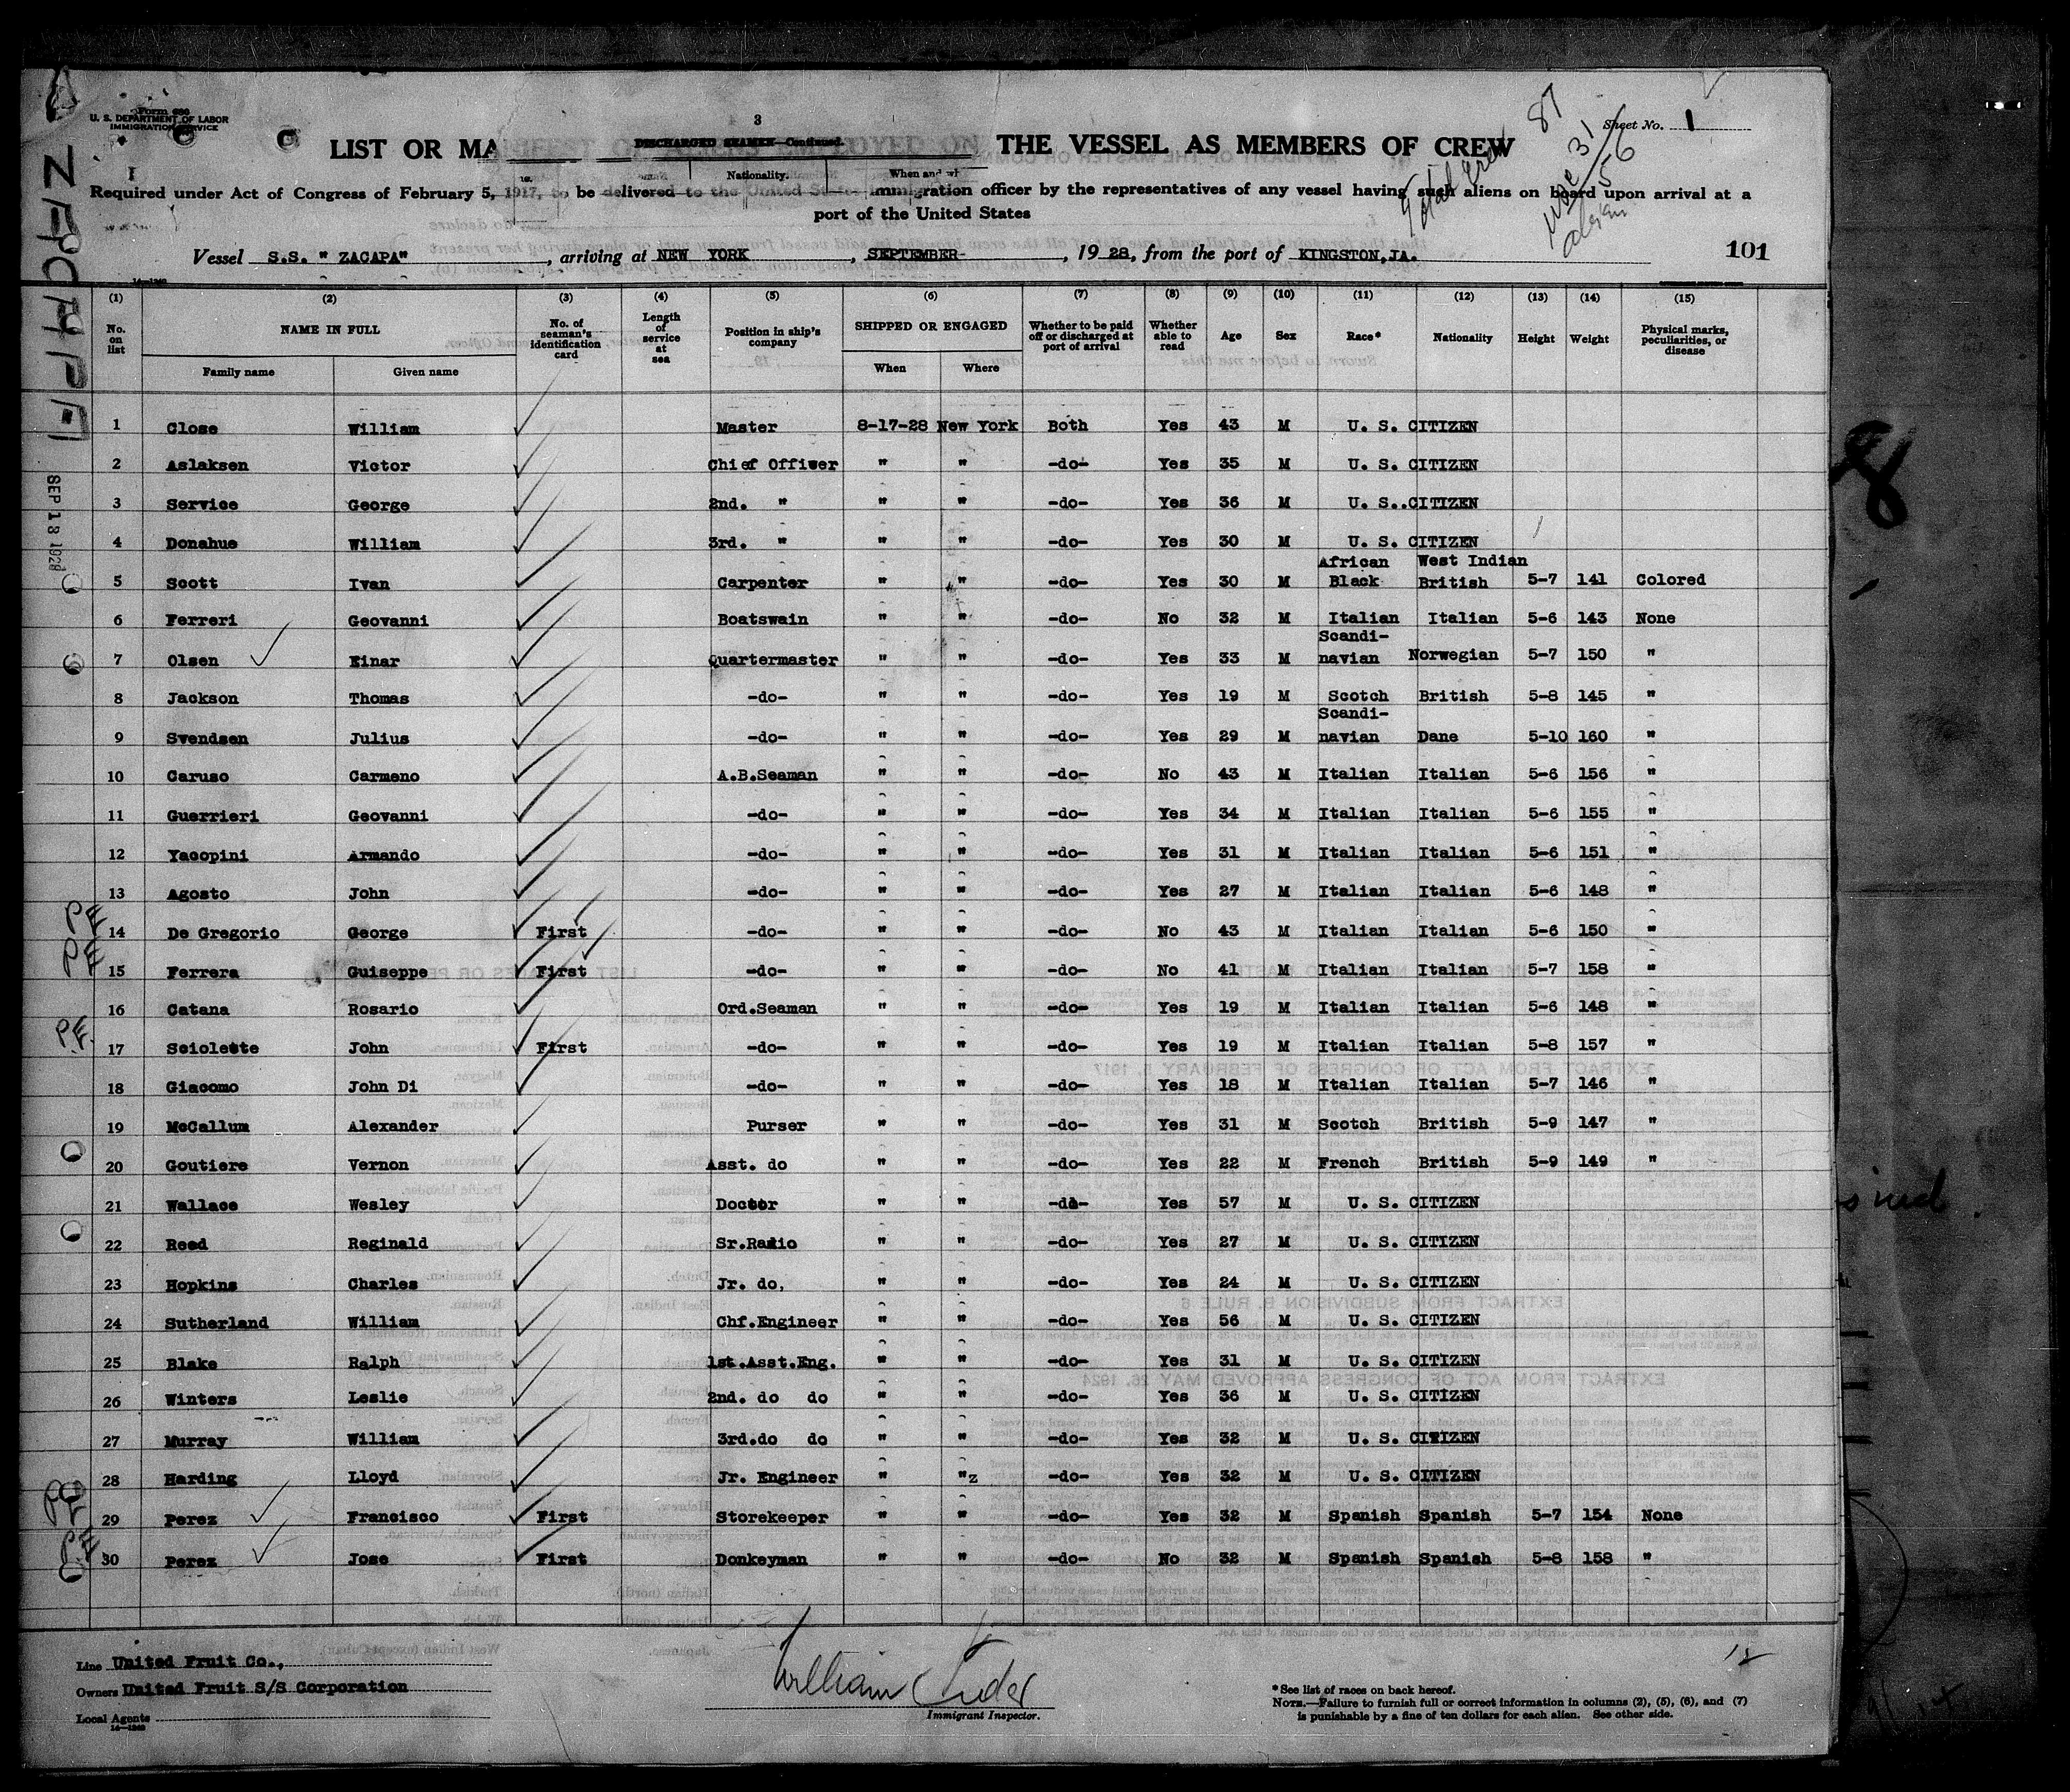 Form 680
U. S. DEPARTMENT OF LABOR
IMMIGRATION SERVICE
3
DISCHARGED SEAMEN—Continued.
Nationality.
When and
Sheet No. 1
LIST OR MANIFEST OF ALIENS EMPLOYED ON THE VESSEL AS MEMBERS OF CREW
Total Crew 87
31
56
alien
Required under Act of Congress of February 5, 1917, to be delivered to the United States immigration officer by the representatives of any vessel having such aliens on board upon arrival at a
port of the United States
Vessel S.S. " ZACAPA" , arriving at NEW YORK , SEPTEMBER- , 19 28, from the port of KINGSTON,JA.
101
ZACAPA
SEP 13 1928
(1) (2) (3) (4) (5) (6) (7) (8) (9) (10) (11) (12) (13) (14) (15)
No. on list NAME IN FULL No. of seaman's identification card Length of service at sea Position in ship's company SHIPPED OR ENGAGED Whether to be paid off or discharged at port of arrival Whether able to read Age Sex Race* Nationality Height Weight Physical marks, peculiarities, or disease
Family name Given name When Where
1 Close William Master 8-17-28 New York Both Yes 43 M U. S. CITIZEN
2 Aslaksen Victor Chief Officer " " -do- Yes 35 M U. S. CITIZEN
3 Service George 2nd. " " " -do- Yes 36 M U. S..CITIZEN
4 Donahue William 3rd. " " " -do- Yes 30 M U. S. CITIZEN
African West Indian
5 Scott Ivan Carpenter " " -do- Yes 30 M Black British 5-7 141 Colored
6 Ferreri Geovanni Boatswain " " -do- No 32 M Italian Italian 5-6 143 None
Scandi-
7 Olsen Einar Quartermaster " " -do- Yes 33 M navian Norwegian 5-7 150 "
8 Jackson Thomas -do- " " -do- Yes 19 M Scotch British 5-8 145 "
Scandi-
9 Svendsen Julius -do- " " -do- Yes 29 M navian Dane 5-10 160 "
10 Caruso Carmeno A.B.Seaman " " -do- No 43 M Italian Italian 5-6 156 "
11 Guerrieri Geovanni -do- " " -do- Yes 34 M Italian Italian 5-6 155 "
12 Yacopini Armando -do- " " -do- Yes 31 M Italian Italian 5-6 151 "
13 Agosto John -do- " " -do- Yes 27 M Italian Italian 5-6 148 "
PE 14 De Gregorio George First -do- " " -do- No 43 M Italian Italian 5-6 150 "
PE 15 Ferrera Guiseppe First -do- " " -do- No 41 M Italian Italian 5-7 158 "
16 Catana Rosario Ord.Seaman " " -do- Yes 19 M Italian Italian 5-6 148 "
P.E. 17 Sciolette John First -do- " " -do- Yes 19 M Italian Italian 5-8 157 "
18 Giacomo John Di -do- " " -do- Yes 18 M Italian Italian 5-7 146 "
19 McCallum Alexander Purser " " -do- Yes 31 M Scotch British 5-9 147 "
20 Goutiere Vernon Asst. do " " -do- Yes 22 M French British 5-9 149 "
21 Wallace Wesley Doctor " " -do- Yes 57 M U. S. CITIZEN
22 Reed Reginald Sr.Radio " " -do- Yes 27 M U. S. CITIZEN
23 Hopkins Charles Jr. do, " " -do- Yes 24 M U. S. CITIZEN
24 Sutherland William Chf.Engineer " " -do- Yes 56 M U. S. CITIZEN
25 Blake Ralph 1st.Asst.Eng. " " -do- Yes 31 M U. S. CITIZEN
26 Winters Leslie 2nd. do do " " -do- Yes 36 M U. S. CITIZEN
27 Murray William 3rd.do do " " -do- Yes 32 M U. S. CITIZEN
28 Harding Lloyd Jr. Engineer " "z -do- Yes 32 M U. S. CITIZEN
PE 29 Perez Francisco First Storekeeper " " -do- Yes 32 M Spanish Spanish 5-7 154 None
PE 30 Perez Jose First Donkeyman " " -do- No 32 M Spanish Spanish 5-8 158 "
Line United Fruit Co.,
Owners United Fruit S/S Corporation
Local Agents
William
Immigrant Inspector.
*See list of races on back hereof.
NOTE.—Failure to furnish full or correct information in columns (2), (5), (6), and (7)
is punishable by a fine of ten dollars for each alien. See other side.
12
8